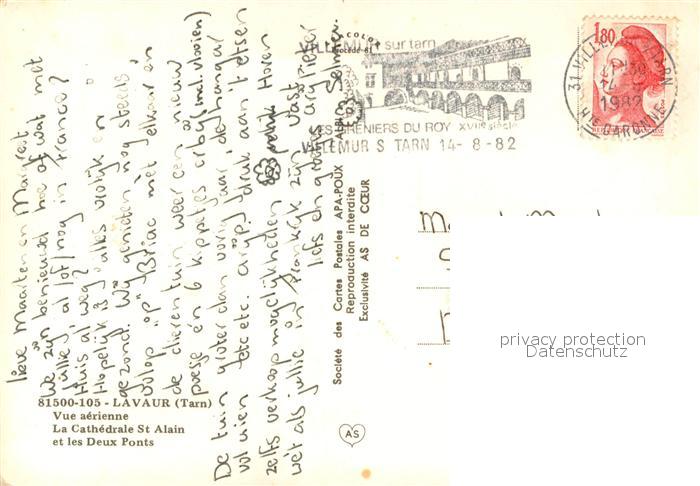 lieve Maarten en Margreet
We zijn benieuwd hoe of wat met
jullie, al (of) nog in France?
Huis al weg?
Hopelijk is alles vrolijk en
gezond. Wij genieten nog steeds
volop op "Briac" met elkaar en
de dierentuin weer een nieuw
poesje én 6 kippetjes erbij (incl. vlooien)
De tuin groter dan vorig jaar, de hangar
vol uien etc etc. druk aan 't
zelfs verkoop mogelijkheden
wèt als jullie in Frankrijk zijn
liefs en groet
81500-105 - LAVAUR (Tarn)
Vue aérienne
La Cathédrale St Alain
et les Deux Ponts
Société des Cartes Postales APA-POUX
Reproduction interdite
Exclusivité AS DE CŒUR
COLOR
AS
VILLEMUR sur tarn
LES GRENIERS DU ROY XVIIe siècle
VILLEMUR S TARN 14-8-82
1,80
31 VILLEMUR S TARN
1982
HTE GARONNE
privacy protection
Datenschutz